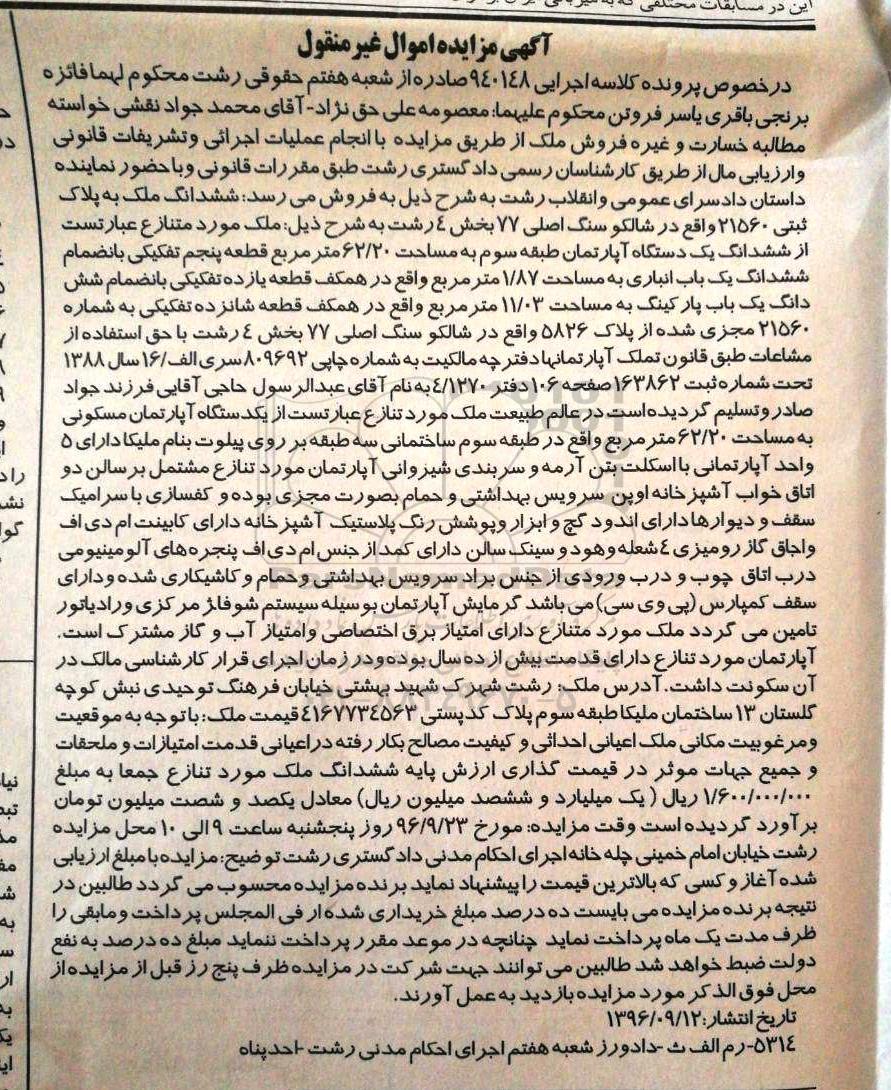 آگهی مزایده اموال غیر منقول
درخصوص پرونده کلاسه اجرایی ۹۴۰۱۴۸ صادره از شعبه هفتم حقوقی رشت محکوم لهما فائزه
برنجی باقری یاسر فروتن محکوم علیهما: معصومه علی حق نژاد-آقای محمد جواد نقشی خواسته
مطالبه خسارت و غیره فروش ملک از طریق مزایده با انجام عملیات اجرائی وتشریفات قانونی
وارزیابی مال از طریق کارشناسان رسمی دادگستری رشت طبق مقررات قانونی وباحضور نماینده
داستان دادسرای عمومی وانقلاب رشت به شرح ذیل به فروش می رسد: ششدانگ ملک به پلاک
ثبتی ۲۱۵۶۰ واقع در شالکو سنگ اصلی ۷۷ بخش ٤ رشت به شرح ذیل: ملک مورد متنازع عبارتست
از ششدانگ یک دستگاه آپارتمان طبقه سوم به مساحت ۶۲/۲۰ متر مربع قطعه پنجم تفکیکی بانضمام
ششدانگ یک باب انباری به مساحت ۱/۸۷ متر مربع واقع در همکف قطعه یازده تفکیکی بانضمام شش
دانگ یک باب پارکینگ به مساحت ۱۱/۰۳ متر مربع واقع در همکف قطعه شانزده تفکیکی به شماره
۲۱۵۶۰ مجزی شده از پلاک ۵۸۲۶ واقع در شالکو سنگ اصلی ۷۷ بخش ٤ رشت با حق استفاده از
مشاعات طبق قانون تملک آپارتمانها دفتر چه مالکیت به شماره چاپی ۸۰۹۶۹۲ سری الف/۱۶ سال ۱۳۸۸
تحت شماره ثبت ۱۶۳۸۶۲ صفحه ۱۰۶ دفتر ٤/۱۲۷۰ به نام آقای عبدالرسول حاجی آقایی فرزند جواد
صادر وتسلیم گردیده است در عالم طبیعت ملک مورد تنازع عبارتست از یکدستگاه آپارتمان مسکونی
به مساحت ۶۲/۲۰ متر مربع واقع در طبقه سوم ساختمانی سه طبقه بر روی پیلوت بنام ملیکا دارای ۵
واحد آپارتمانی با اسکلت بتن آرمه و سربندی شیروانی آپارتمان مورد تنازع مشتمل بر سالن دو
اتاق خواب آشپزخانه اوپن سرویس بهداشتی و حمام بصورت مجزی بوده و کفسازی با سرامیک
سقف و دیوارها دارای اندود گچ و ابزار وپوشش رنگ پلاستیک آشپزخانه دارای کابینت ام دی اف
واجاق گاز رومیزی ٤ شعله وهود و سینک سالن دارای کمد از جنس ام دی اف پنجره های آلومینیومی
درب اتاق چوب و درب ورودی از جنس براد سرویس بهداشتی وحمام و کاشیکاری شده ودارای
سقف کمپارس (پی وی سی) می باشد گرمایش آپارتمان بوسیله سیستم شوفاژ مرکزی ورادیاتور
تامین می گردد ملک مورد متنازع دارای امتیاز برق اختصاصی وامتیاز آب و گاز مشترک است.
آپارتمان مورد تنازع دارای قدمت بیش از ده سال بوده ودر زمان اجرای قرار کارشناسی مالک در
آن سکونت داشت. آدرس ملک: رشت شهرک شهید بهشتی خیابان فرهنگ توحیدی نبش کوچه
گلستان ۱۳ ساختمان ملیکا طبقه سوم پلاک کدپستی ٤۱۶۷۷۳٤۵۶۳ قیمت ملک: با توجه به موقعیت
ومرغوبیت مکانی ملک اعیانی احداثی و کیفیت مصالح بکار رفته در اعیانی قدمت امتیازات و ملحقات
و جمیع جهات موثر در قیمت گذاری ارزش پایه ششدانگ ملک مورد تنازع جمعا به مبلغ
۱/۶۰۰/۰۰۰/۰۰۰ ریال ( یک میلیارد و ششصد میلیون ریال) معادل یکصد و شصت میلیون تومان
برآورد گردیده است وقت مزایده: مورخ ۹۶/۹/۲۳ روز پنجشنبه ساعت ۹ الی ۱۰ محل مزایده
رشت خیابان امام خمینی چله خانه اجرای احکام مدنی دادگستری رشت توضیح: مزایده با مبلغ ارزیابی
شده آغاز و کسی که بالاترین قیمت را پیشنهاد نماید برنده مزایده محسوب می گردد طالبین در
نتیجه برنده مزایده می بایست ده درصد مبلغ خریداری شده ار فی المجلس پرداخت و مابقی را
ظرف مدت یک ماه پرداخت نماید چنانچه در موعد مقرر پرداخت ننماید مبلغ ده درصد به نفع
دولت ضبط خواهد شد طالبین می توانند جهت شرکت در مزایده ظرف پنج رز قبل از مزایده از
محل فوق الذکر مورد مزایده بازدید به عمل آورند.
تاریخ انتشار: ۱۳۹۶/۰۹/۱۲
۵۳۱٤-رم الف ث -دادورز شعبه هفتم اجرای احکام مدنی رشت -احدپناه